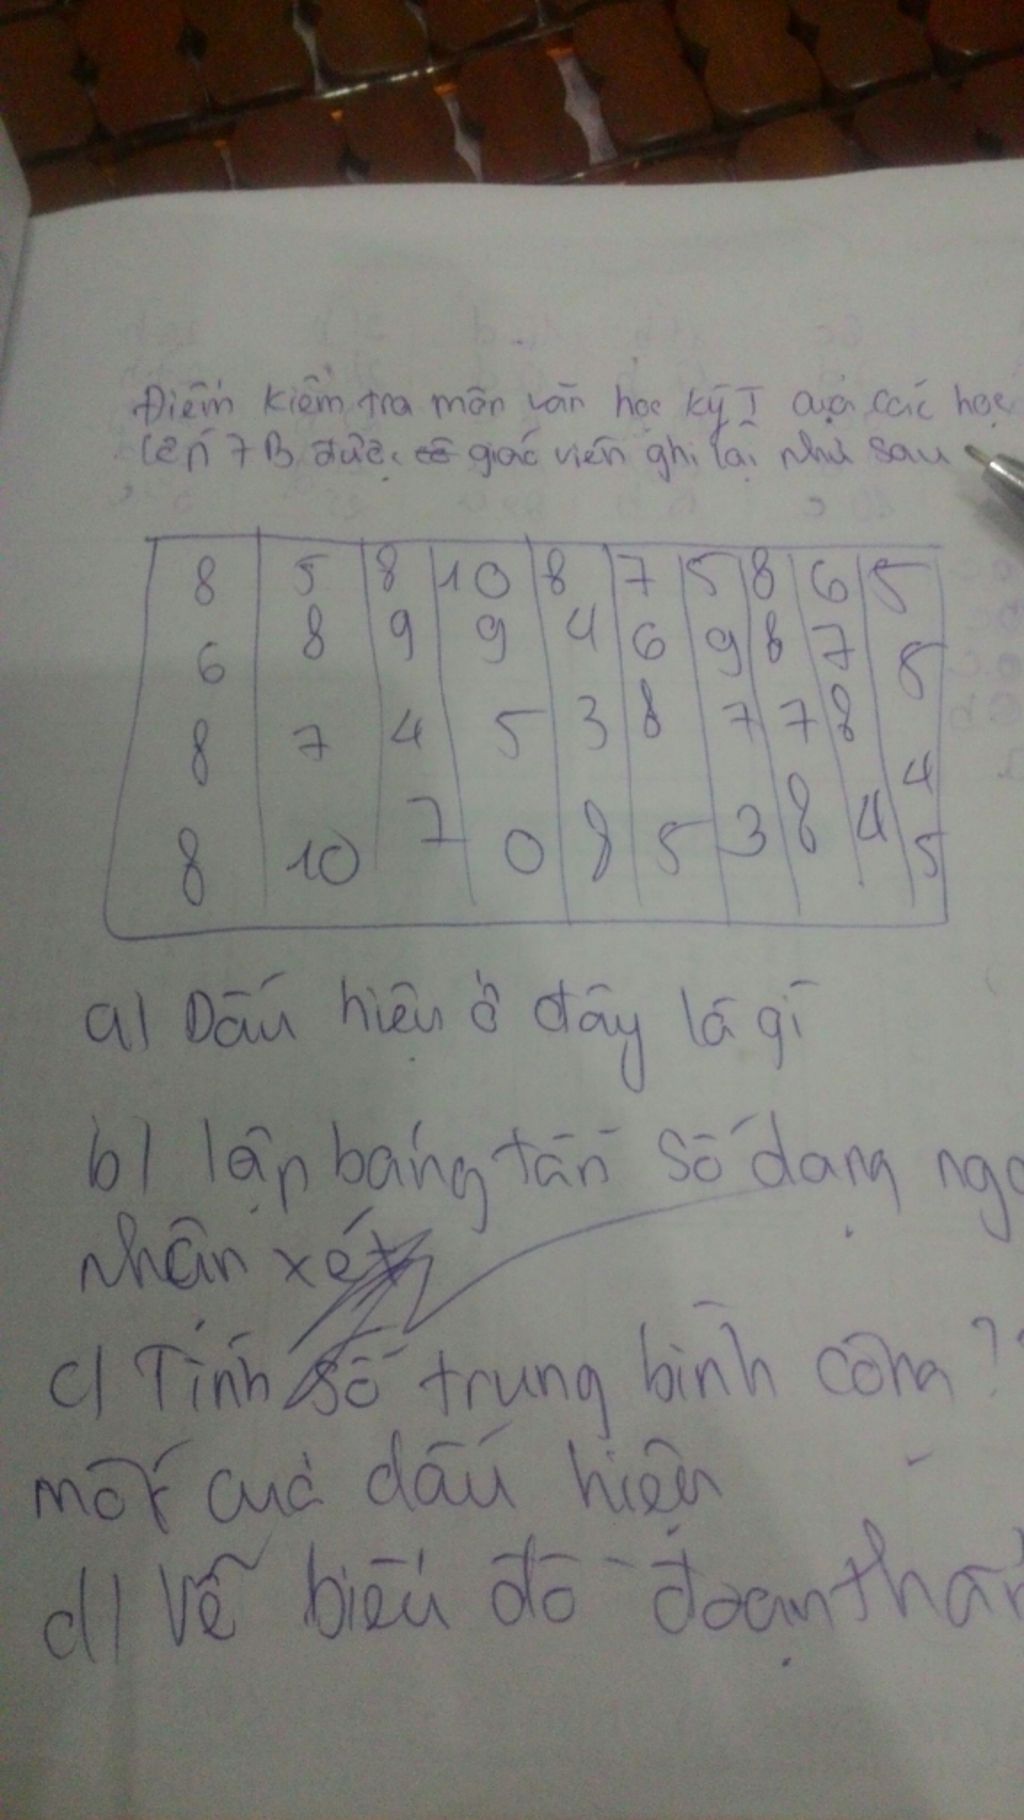 Điểm kiểm tra môn văn học kỳ I của các học
lớp 7B được giáo viên ghi lại như sau
8 5 8 10 8 7 5 8 6 5
6 8 9 9 4 6 9 8 7 5
8 7 4 5 3 8 7 7 8 4
8 10 7 0 8 5 3 8 4 5
a) Dấu hiệu ở đây là gì
b) lập bảng tần số dạng
nhận xét
c) Tính số trung bình cộng ?
mốt của dấu hiệu
d) Vẽ biểu đồ đoạn